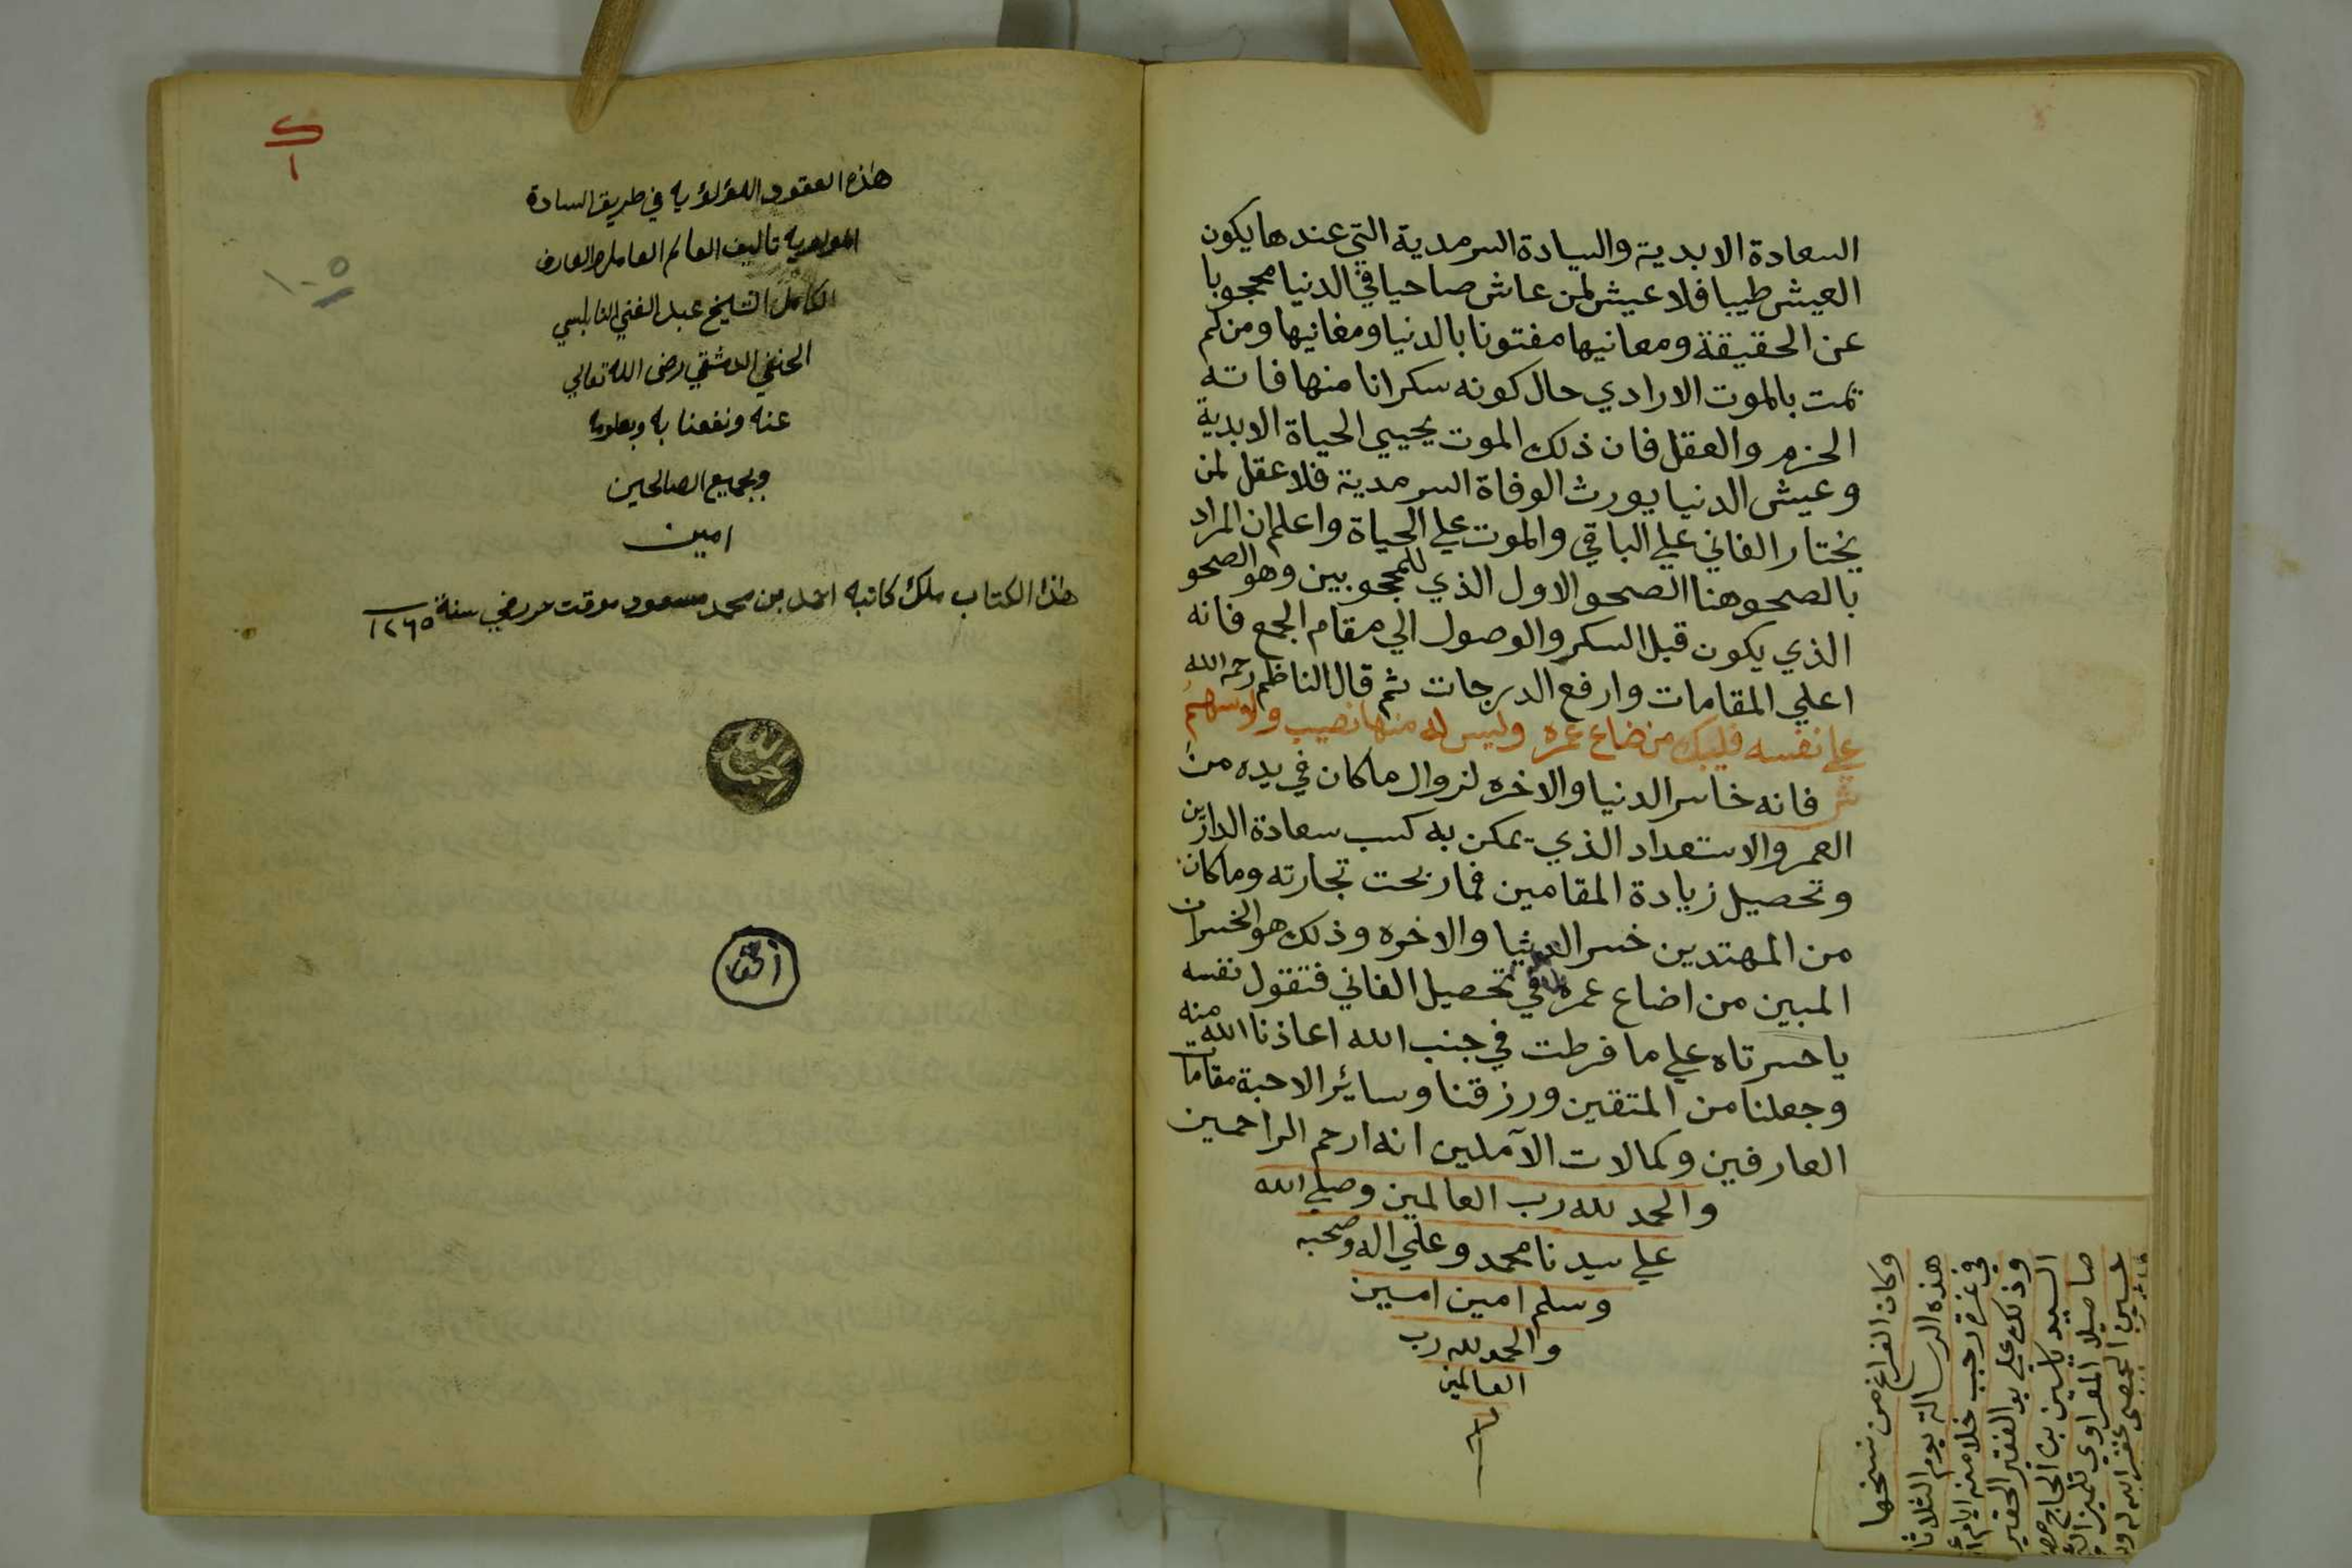 السعادة الابدية والسيادة السرمدية التي عندها يكون
العيش طيبا فلا عيش لمن عاش صاحيا في الدنيا محجوبا
عن الحقيقة ومعانيها مفتونا بالدنيا ومغانيها ومن لم
يمت بالموت الارادي حال كونه سكرانا منها فاته
الحزم والعقل فان ذلك الموت يحيي الحياة الابدية
وعيش الدنيا يورث الوفاة السرمدية فلا عقل لمن
يختار الفاني علي الباقي والموت علي الحياة واعلم ان المراد
بالصحو هنا الصحو الاول الذي للمحجوبين وهو الصحو
الذي يكون قبل السكر والوصول الي مقام الجمع فانه
اعلي المقامات وارفع الدرجات ثم قال الناظم رحمه الله
علي نفسه فليبك من ضاع عمره وليس له منها نصيب ولا سهم
ش فانه خاسر الدنيا والاخره لزوال ما كان في يده من
العمر والاستعداد الذي يمكن به كسب سعادة الدارين
وتحصيل زيادة المقامين فما ربحت تجارته وما كان
من المهتدين خسر الدنيا والاخره وذلك هو الخسران
المبين من اضاع عمره في تحصيل الفاني فتقول نفسه
يا حسرتاه علي ما فرطت في جنب الله اعاذنا الله منه
وجعلنا من المتقين ورزقنا وسائر الاحبة مقامات
العارفين وكمالات الآملين انه ارحم الراحمين
والحمد لله رب العالمين وصلي الله
علي سيدنا محمد وعلي اله وصحبه
وسلم امين امين
والحمد لله رب
العالمين
وكان الفراغ من نسخها
هذه الرسالة يوم الثلاثا
في غرة رجب خلا منه ايام
وذلك علي يد الفقير الحقير
السيد ياسين بن الحاج
صاصيلا المقراوي تلميذ
غفر الله له
ك
١
هذه العقود اللؤلؤيه في طريق السادة
المولويه تاليف العالم العامل والعارف
الكامل الشيخ عبد الغني النابلسي
الحنفي الدمشقي رضى الله تعالي
عنه ونفعنا به وبعلومه
وبجميع الصالحين
امين
هذا الكتاب ملك كاتبه احمد بن محمد مسعود موقت مرضي سنة ١٢٦٥